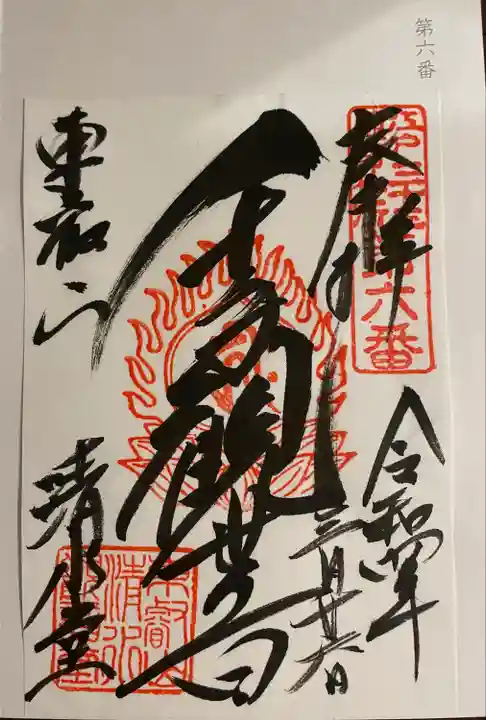 第六番
奉拝
第六番
令和四年
三月廿六日
千手観世音
東叡山
清水堂